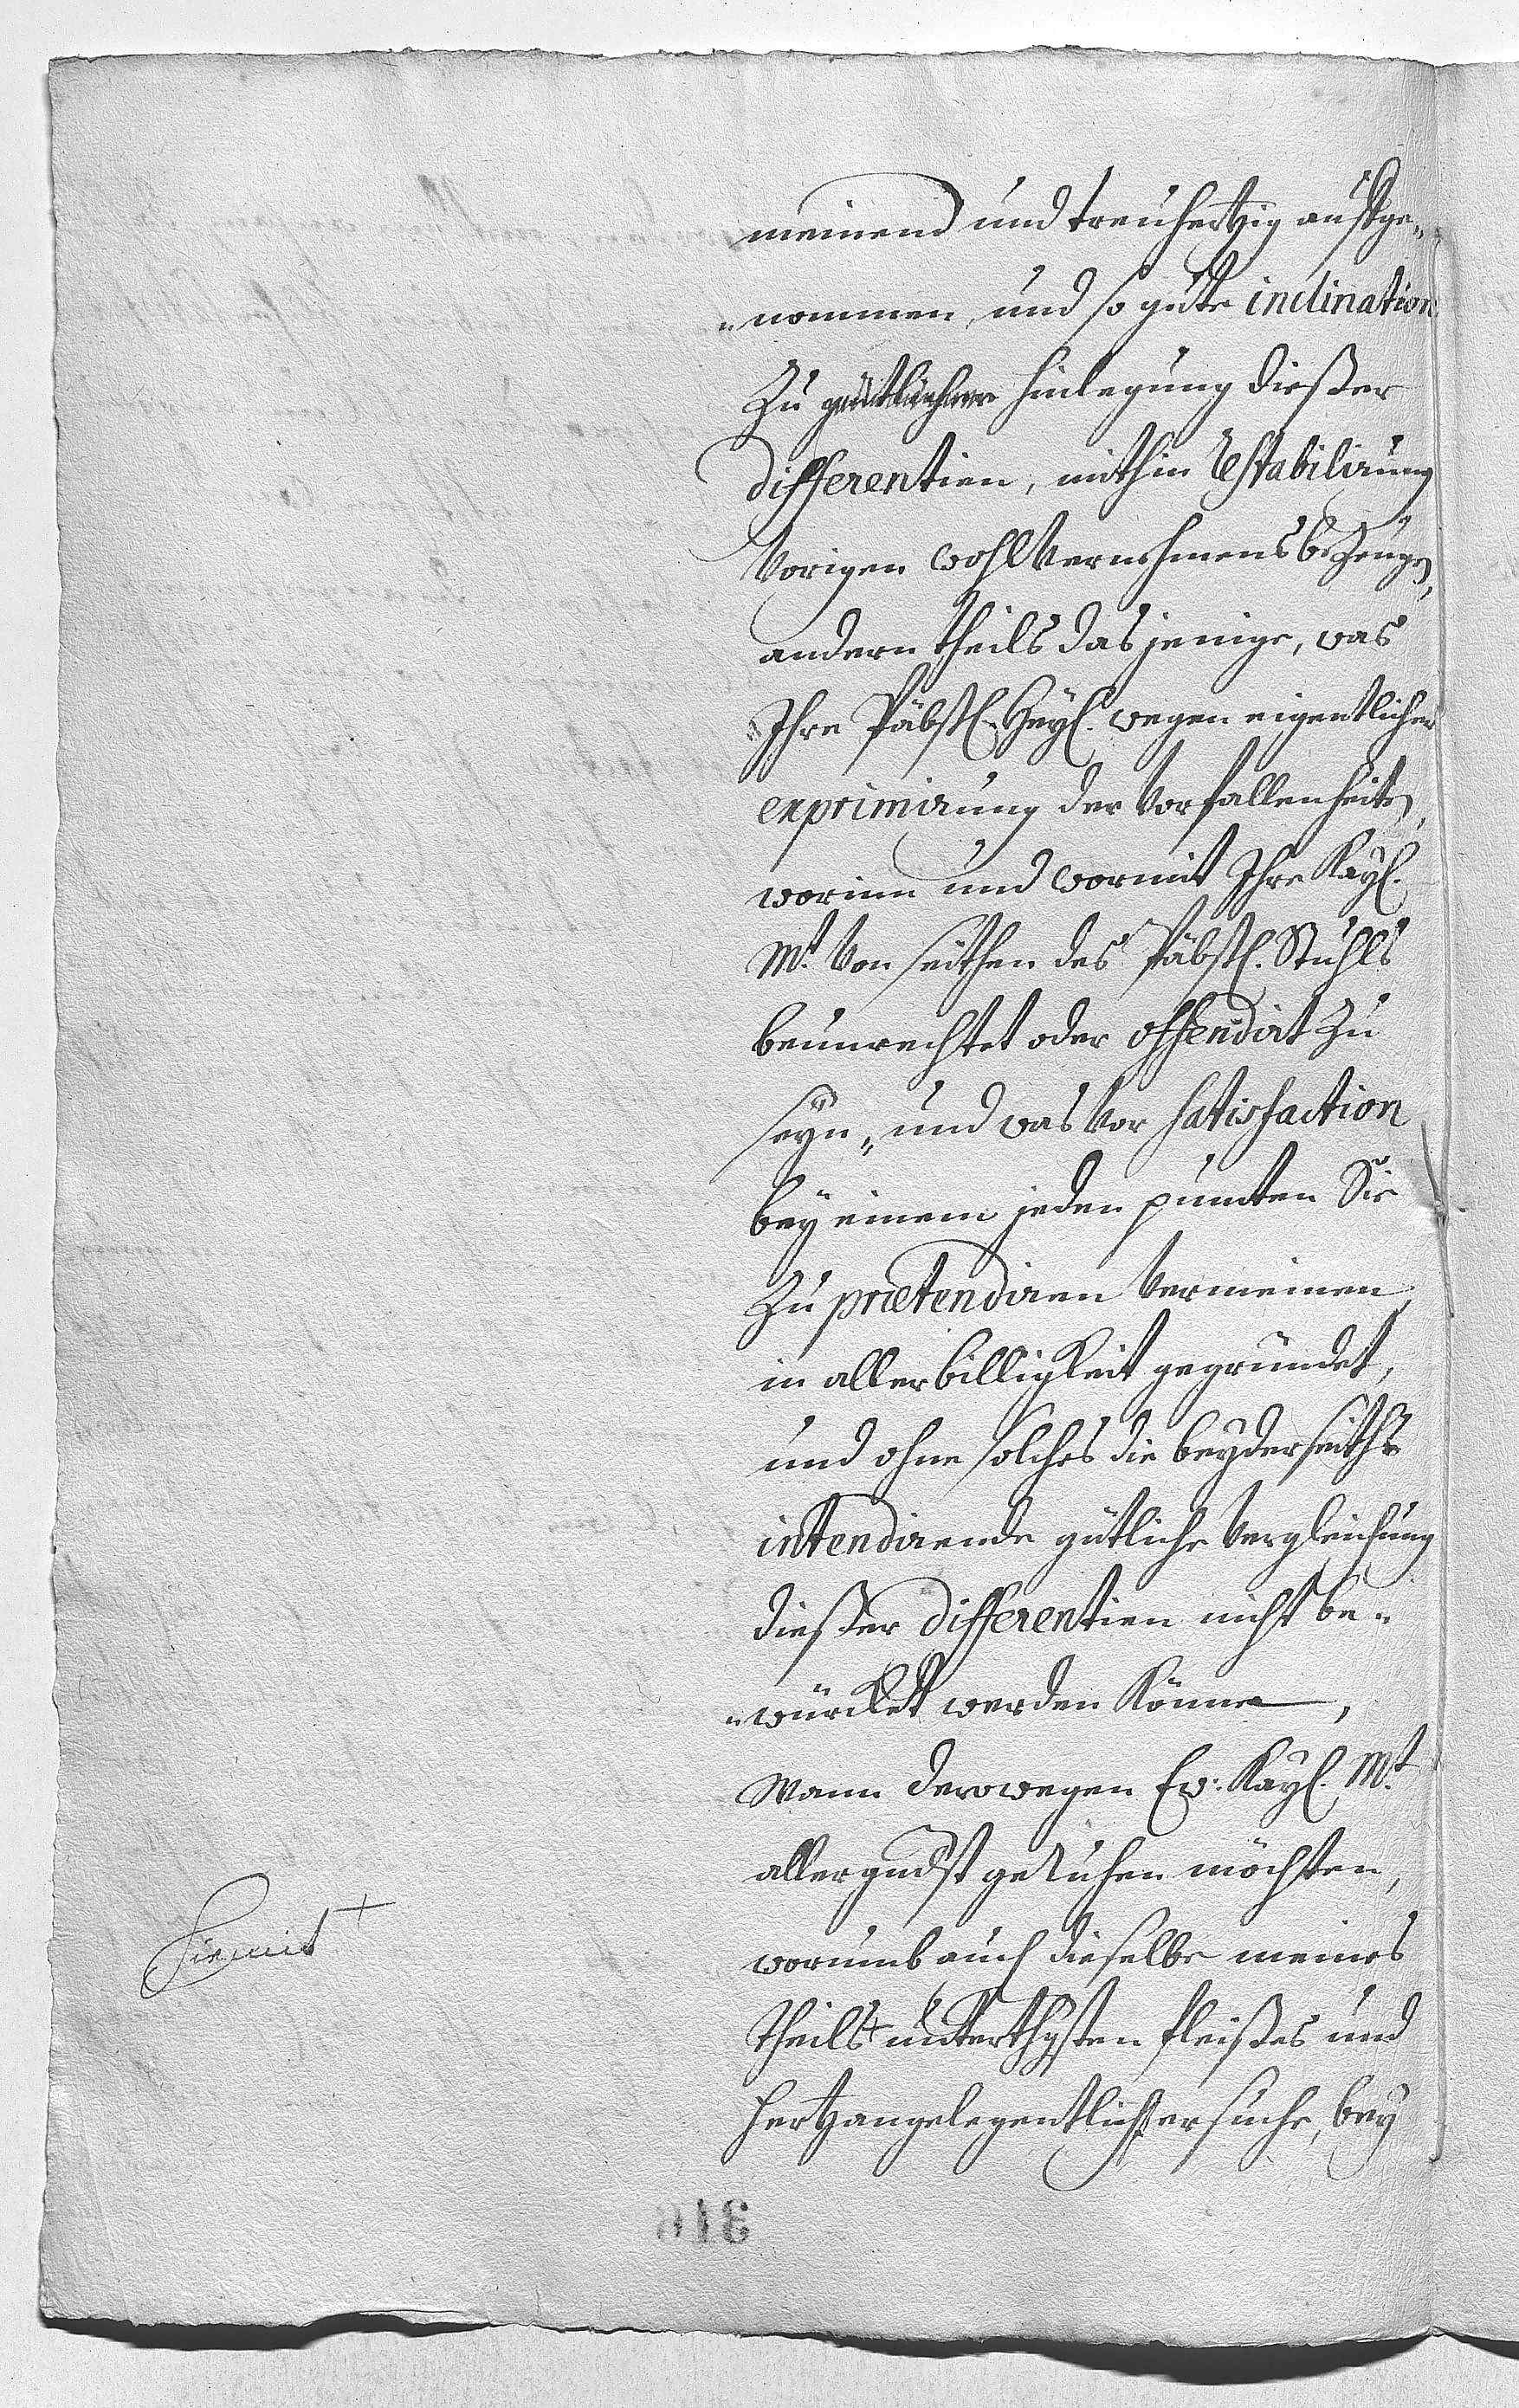 meinend und treuhertzig auffge„
„nommen, und so gute inclination
Zu güttlicher hinlegung dießer
differentien, mithin Estabilirung
vorigen wohlvernehmens bezeuge,
andern theils das jenige, was
Ihre Päbstl. Heyl. wegen eigentlicher
exprimirung der vorfallenheiten,
worinn und wormit Ihre Kayl.
Mt. von seithen des Päbstl. Stuhls
beunrechtet oder offendirt Zu
seyn„ und was vor satisfaction
bey einem jeden puncten Sie
Zu prætendiren vermeinen
in aller billigkeit gegründet,
und ohne solches die beyderseiths
intendirende gütliche vergleichung
dießer differentien nicht be„
„würcket werden könne,
Wann derowegen Ew: Kayl. Mt.
allergndst geruhen möchten,
worumb auch dieselbe meines
theils+ unterthgsten fleißes und
hertzangelegentlichst ersuche, bey
hiemit +
316